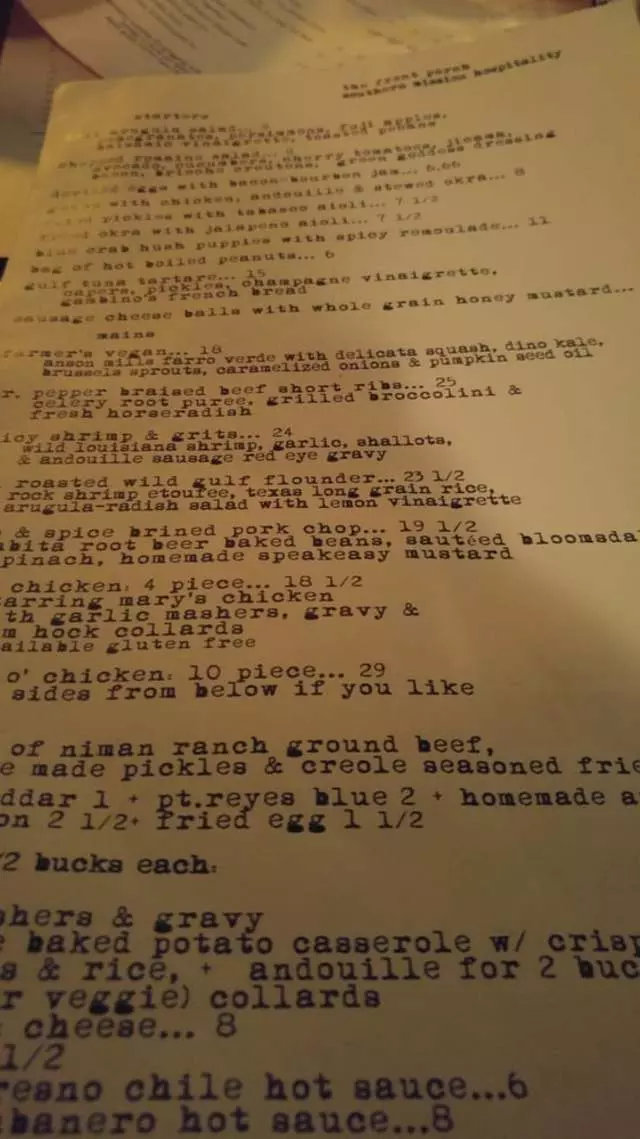 the front porch
southern mission hospitality
starters
arugula salad...
pomegranates, persimmons, fuji apples,
balsamic vinaigrette, toasted pecans
chopped romaine salad... 8
avocado, cucumbers, cherry tomatoes, jicama,
bacon, brioche croutons, green goddess dressing
deviled eggs with bacon-bourbon jam... 6.66
with chicken, andouille & stewed okra... 8
fried pickles with tabasco aioli... 7 1/2
fried okra with jalapeno aioli... 7 1/2
blue crab hush puppies with spicy remoulade... 11
bag of hot boiled peanuts... 6
gulf tuna tartare... 15
capers, pickles, champagne vinaigrette,
gambino's french bread
sausage cheese balls with whole grain honey mustard...
mains
farmer's vegan... 18
anson mills farro verde with delicata squash, dino kale,
brussels sprouts, caramelized onions & pumpkin seed oil
r. pepper braised beef short ribs... 25
celery root puree, grilled broccolini &
fresh horseradish
icy shrimp & grits... 24
wild louisiana shrimp, garlic, shallots,
& andouille sausage red eye gravy
roasted wild gulf flounder... 23 1/2
rock shrimp etoufee, texas long grain rice,
arugula-radish salad with lemon vinaigrette
& spice brined pork chop... 19 1/2
abita root beer baked beans, sautéed bloomsda
pinach, homemade speakeasy mustard
chicken: 4 piece... 18 1/2
tarring mary's chicken
th garlic mashers, gravy &
m hock collards
ailable gluten free
o' chicken: 10 piece... 29
sides from below if you like
of niman ranch ground beef,
e made pickles & creole seasoned frie
ddar 1 + pt.reyes blue 2 + homemade a
on 2 1/2+ fried egg 1 1/2
/2 bucks each:
shers & gravy
e baked potato casserole w/ crisp
s & rice, + andouille for 2 buc
r veggie) collards
cheese... 8
1/2
resno chile hot sauce...6
abanero hot sauce...8